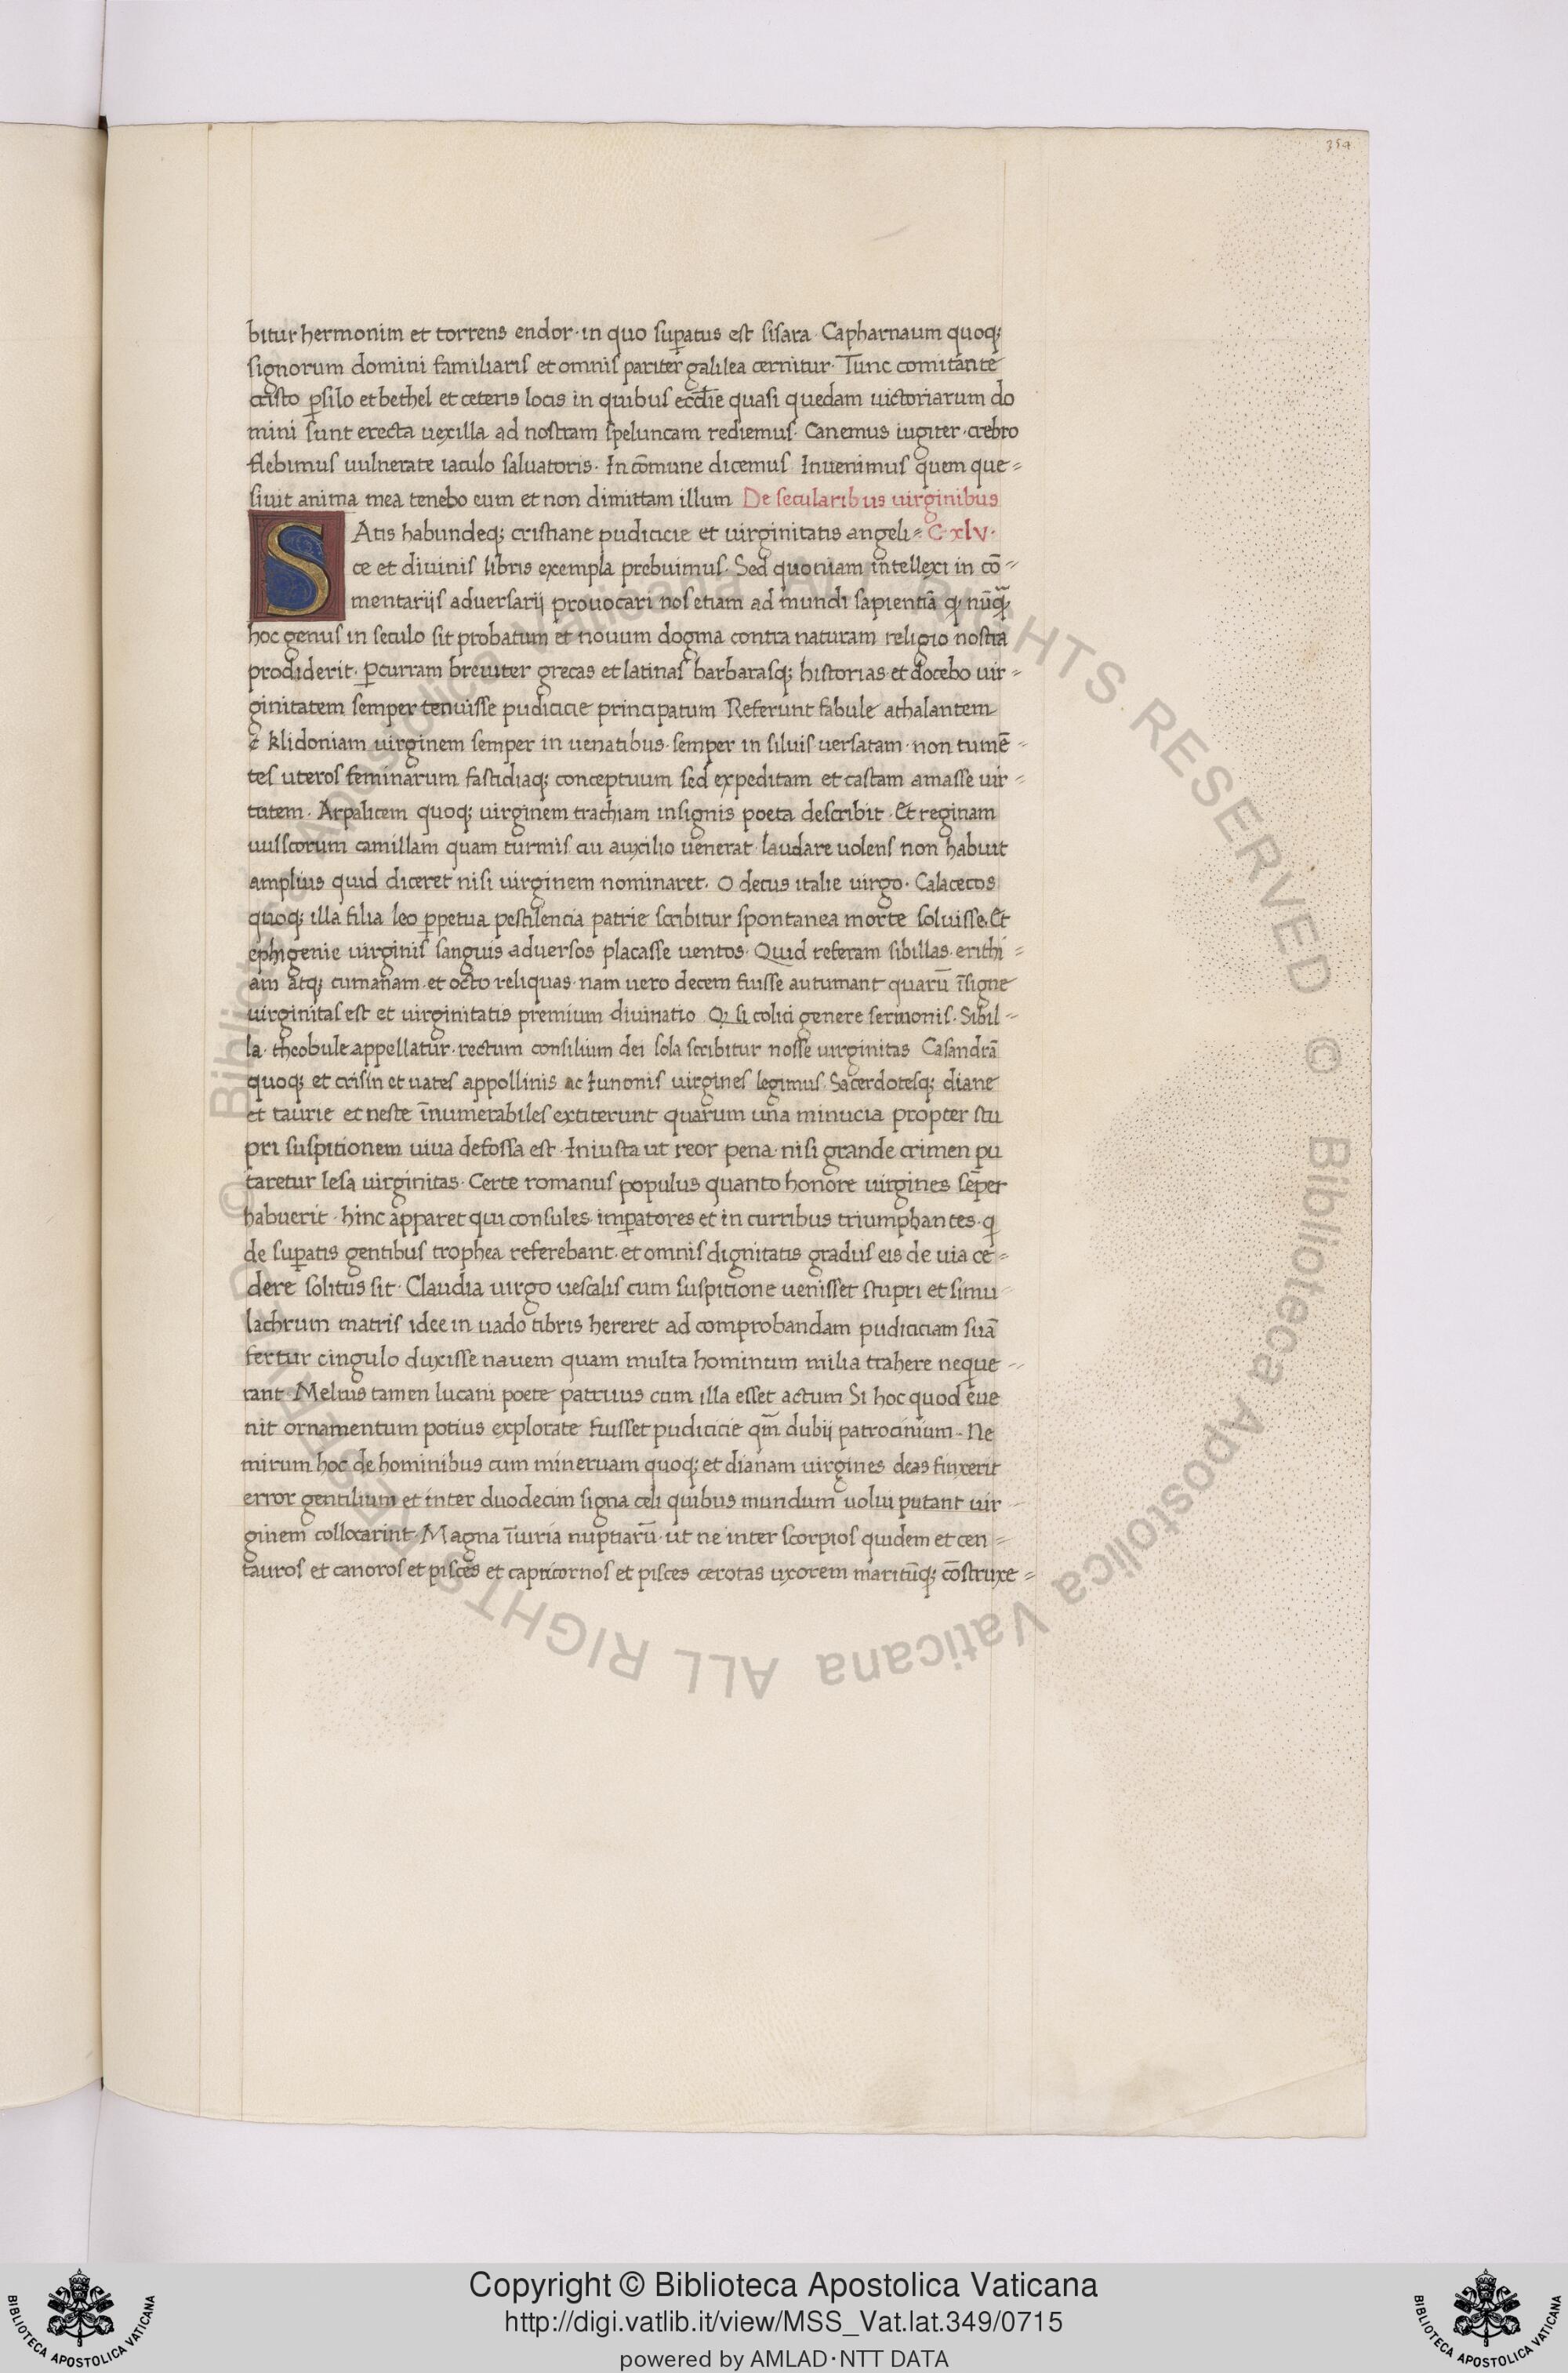 354
bitur hermonim et torrens endor· in quo suꝑatus est sisara· Capharnaum quoq;
signorum domini familiaris et omnis pariter galilea cernitur· Tunc comitante
cristo ꝑ silo et bethel et ceteris locis in quibus eccl̄ie quasi quedam uictoriarum do
mini sunt erecta uexilla ad nostram speluncam rediemus· Canemus iugiter· crebro
flebimus uulnerate iaculo saluatoris· In cōmune dicemus Inuenimus quem que=
siuit anima mea tenebo eum et non dimittam illum De secularibus uirginibus
SAtis habundeq; cristiane pudicicie et uirginitatis angeli= C· xlv·
ce et diuinis libris exempla prebuimus· Sed quoniam intellexi in cō=
mentarijs aduersarij prouocari nos etiam ad mundi sapientiā q; nūq̄;
hoc genus in seculo sit probatum et nouum dogma contra naturam religio nostra
prodiderit· ꝑcurram breuiter grecas et latinas barbarasq; historias· et docebo uir=
ginitatem semper tenuisse pudicicie principatum Referunt fabule athalantem
klidoniam uirginem semper in uenatibus· semper in siluis uersatam· non tumē=
tes uteros feminarum fastidiaq; conceptuum sed expeditam et castam amasse uir=
tutem· Arpalicem quoq; uirginem trachiam insignis poeta describit· Et reginam
uulscorum camillam quam turnis cui auxilio uenerat· laudare uolens non habuit
amplius quid diceret nisi uirginem nominaret· O decus italie uirgo· Calacecos
quoq; illa filia leo ꝑpetua pestilencia patrie scribitur spontanea morte soluisse· Et
ephigenie uirginis sanguis aduersos placasse uentos· Quid referam sibillas· erithi=
am atq; cumanam· et octo reliquas· nam uero decem fuisse autumant quarū īsigne
uirginitas est et uirginitatis premium diuinatio Q; si colici genere sermonis· Sibil=
la· theobule appellatur· rectum consilium dei sola scribitur nosse uirginitas Casandrā
quoq; et crisin et uates appollinis ac Iunonis uirgines legimus· Sacerdotesq; diane
et taurie et neste īnumerabiles extiterunt quarum una minucia propter stu
pri suspitionem uiua defossa est· Iniusta ut reor pena· nisi grande crimen pu
taretur lesa uirginitas· Certe romanus populus quanto honore uirgines sēper
habuerit· hinc apparet qui consules· imꝑatores et in curribus triumphantes· q
de suꝑatis gentibus trophea referebant· et omnis dignitatis gradus eis de uia ce=
dere solitus sit· Claudia uirgo uescalis cum suspitione uenisset stupri et simu
lachrum matris idee in uado tibris hereret ad comprobandam pudiciciam suā
fertur cingulo duxisse nauem quam multa hominum milia trahere neque=
rant· Melius tamen lucani poete patruus cum illa esset actum Si hoc quod eue
nit ornamentum potius explorate fuisset pudicicie qm̄ dubij patrocinium· Ne
mirum hoc de hominibus cum mineruam quoq; et dianam uirgines deas finxerit
error gentilium et inter duodecim signa celi quibus mundum uolui putant uir
ginem collocarint· Magna īiuria nuptiarū· ut ne inter scorpios quidem et cen=
tauros et cancros et pisces et capricornos et pisces cerotas uxorem maritūq; cōstruxe=
© Biblioteca Apostolica Vaticana ALL RIGHTS RESERVED © Biblioteca Apostolica Vaticana ALL RIGHTS RESERVED
Copyright © Biblioteca Apostolica Vaticana
http://digi.vatlib.it/view/MSS_Vat.lat.349/0715
powered by AMLAD·NTT DATA
BIBLIOTECA APOSTOLICA VATICANA
BIBLIOTECA APOSTOLICA VATICANA